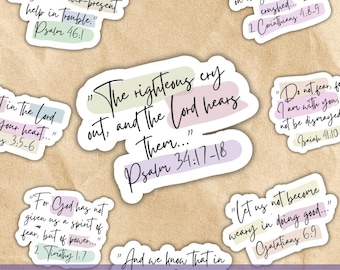 present
help in trouble."
Psalm 46:1
crushed...
2 Corinthians 4:8-9
"The righteous cry
out, and the Lord hears
Them..."
Psalm 34:17-18
t in the Lord
your heart
3:5-6
"Do not fear, fo
I am with you
not be dismayed
Isaiah 41:10
"For God has not
given us a spirit of
fear, but of power..."
2 Timothy 1:7
"Let us not become
weary in doing good..."
Galatians 6:9
"And we know that in